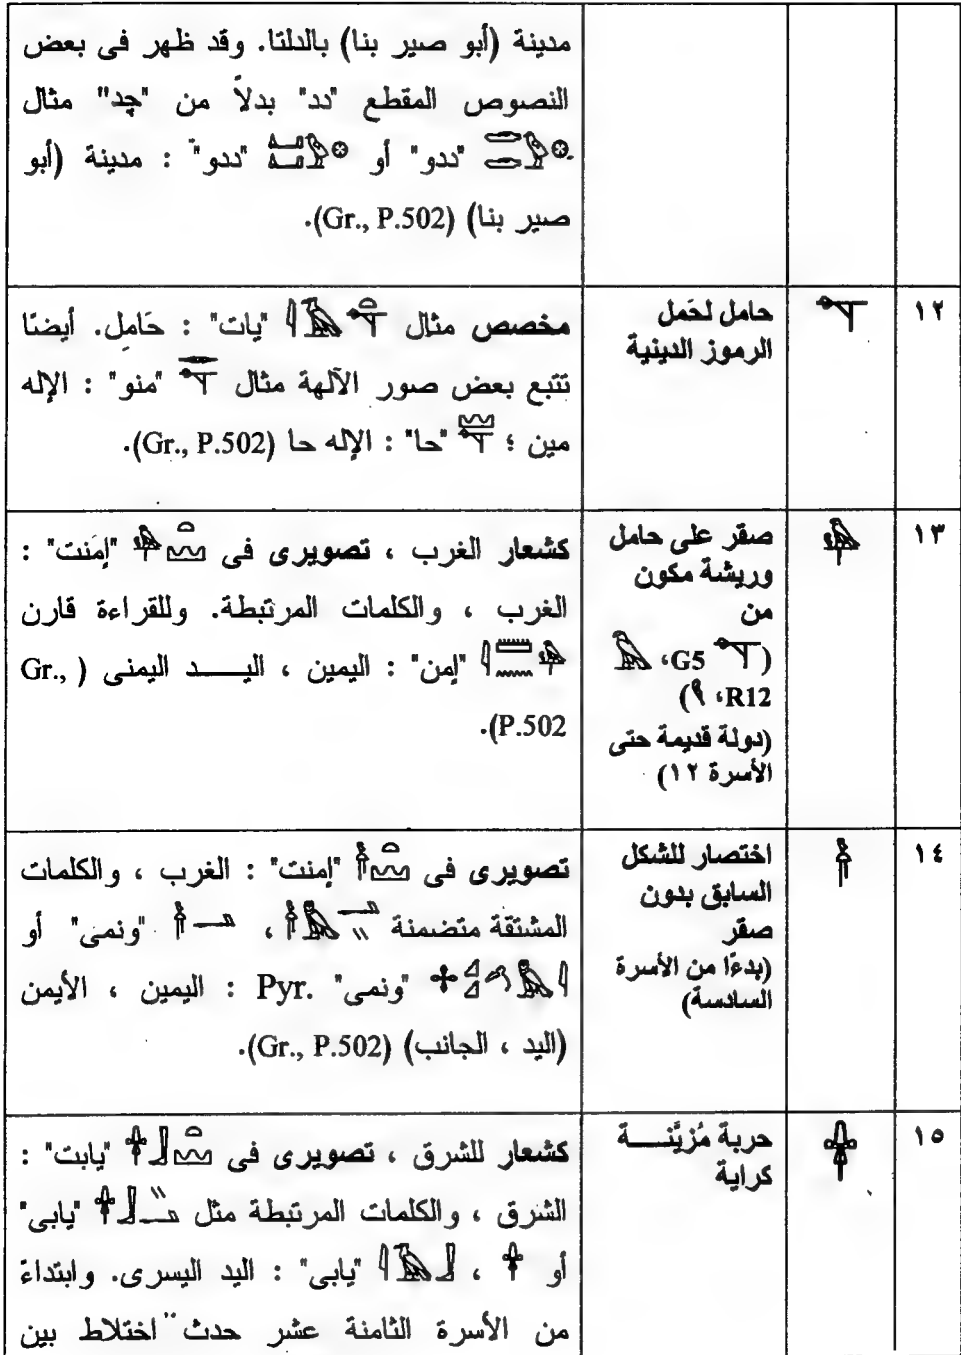 مدينة (أبو صير بنا) بالدلتا. وقد ظهر فى بعض
النصوص المقطع "دد" بدلاً من "چد" مثال
"ددو" أو "ددو" : مدينة (أبو
صير بنا) (Gr., P.502).
١٢
حامل لحَمل
الرموز الدينية
مخصص مثال "يات" : حَامِل. أيضًا
تتبع بعض صور الآلهة مثال "منو" : الإله
مين ؛ "حا" : الإله حا (Gr., P.502).
١٣
صقر على حامل
وريشة مكون
من
(G5،
R12،)
(دولة قديمة حتى
الأسرة ١٢)
كشعار الغرب ، تصويرى فى "إمَنت" :
الغرب ، والكلمات المرتبطة. وللقراءة قارن
"إمن" : اليمين ، اليـــد اليمنى (Gr.,
P.502).
١٤
اختصار للشكل
السابق بدون
صقر
(بدءًا من الأسرة
السادسة)
تصويرى فى "إمنت" : الغرب ، والكلمات
المشتقة متضمنة ، "ونمى" أو
"ونمى" Pyr. : اليمين ، الأيمن
(اليد ، الجانب) (Gr., P.502).
١٥
حربة مُزيَّنـــة
كراية
كشعار للشرق ، تصويرى فى "يابت" :
الشرق ، والكلمات المرتبطة مثل "يابى"
أو ، "يابى" : اليد اليسرى. وابتداءً
من الأسرة الثامنة عشر حدث اختلاط بين